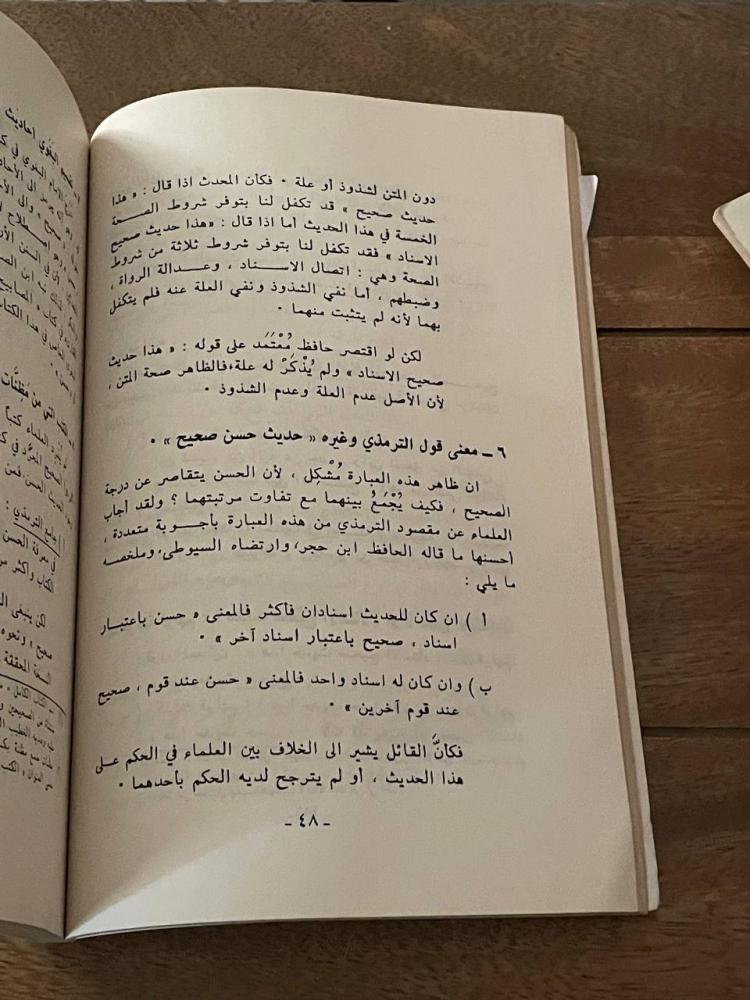 دون المتن لشذوذ أو علة ٠ فكأن المحدث اذا قال : « هذا
حديث صحيح » قد تكفل لنا بتوفر شروط الصحة
الخمسة في هذا الحديث أما اذا قال : «هذا حديث صحيح
الاسناد » فقد تكفل لنا بتوفر شروط ثلاثة من شروط
الصحة وهي : اتصال الاسناد ، وعدالة الرواة ،
وضبطهم ، أما نفي الشذوذ ونفي العلة عنه فلم يتكفل
بهما لأنه لم يتثبت منهما ٠
لكن لو اقتصر حافظ مُعْتَمَد على قوله : « هذا حديث
صحيح الاسناد » ولم يُذْكَرْ له علة،فالظاهر صحة المتن ،
لأن الأصل عدم العلة وعدم الشذوذ ٠
٦ ـ معنى قول الترمذي وغيره « حديث حسن صحيح » ٠
ان ظاهر هذه العبارة مُشْكِل ، لأن الحسن يتقاصر عن درجة
الصحيح ، فكيف يُجْمَعُ بينهما مع تفاوت مرتبتهما ؟ ولقد أجاب
العلماء عن مقصود الترمذي من هذه العبارة بأجوبة متعددة ،
أحسنها ما قاله الحافظ ابن حجر، وارتضاه السيوطى، وملخصه
ما يلي :
أ ) ان كان للحديث اسنادان فأكثر فالمعنى « حسن باعتبار
اسناد ، صحيح باعتبار اسناد آخر » ٠
ب) وان كان له اسناد واحد فالمعنى « حسن عند قوم ، صحيح
عند قوم آخرين » ٠
فكأنَّ القائل يشير الى الخلاف بين العلماء في الحكم على
هذا الحديث ، أو لم يترجح لديه الحكم بأحدهما ٠
ـ ٤٨ ـ